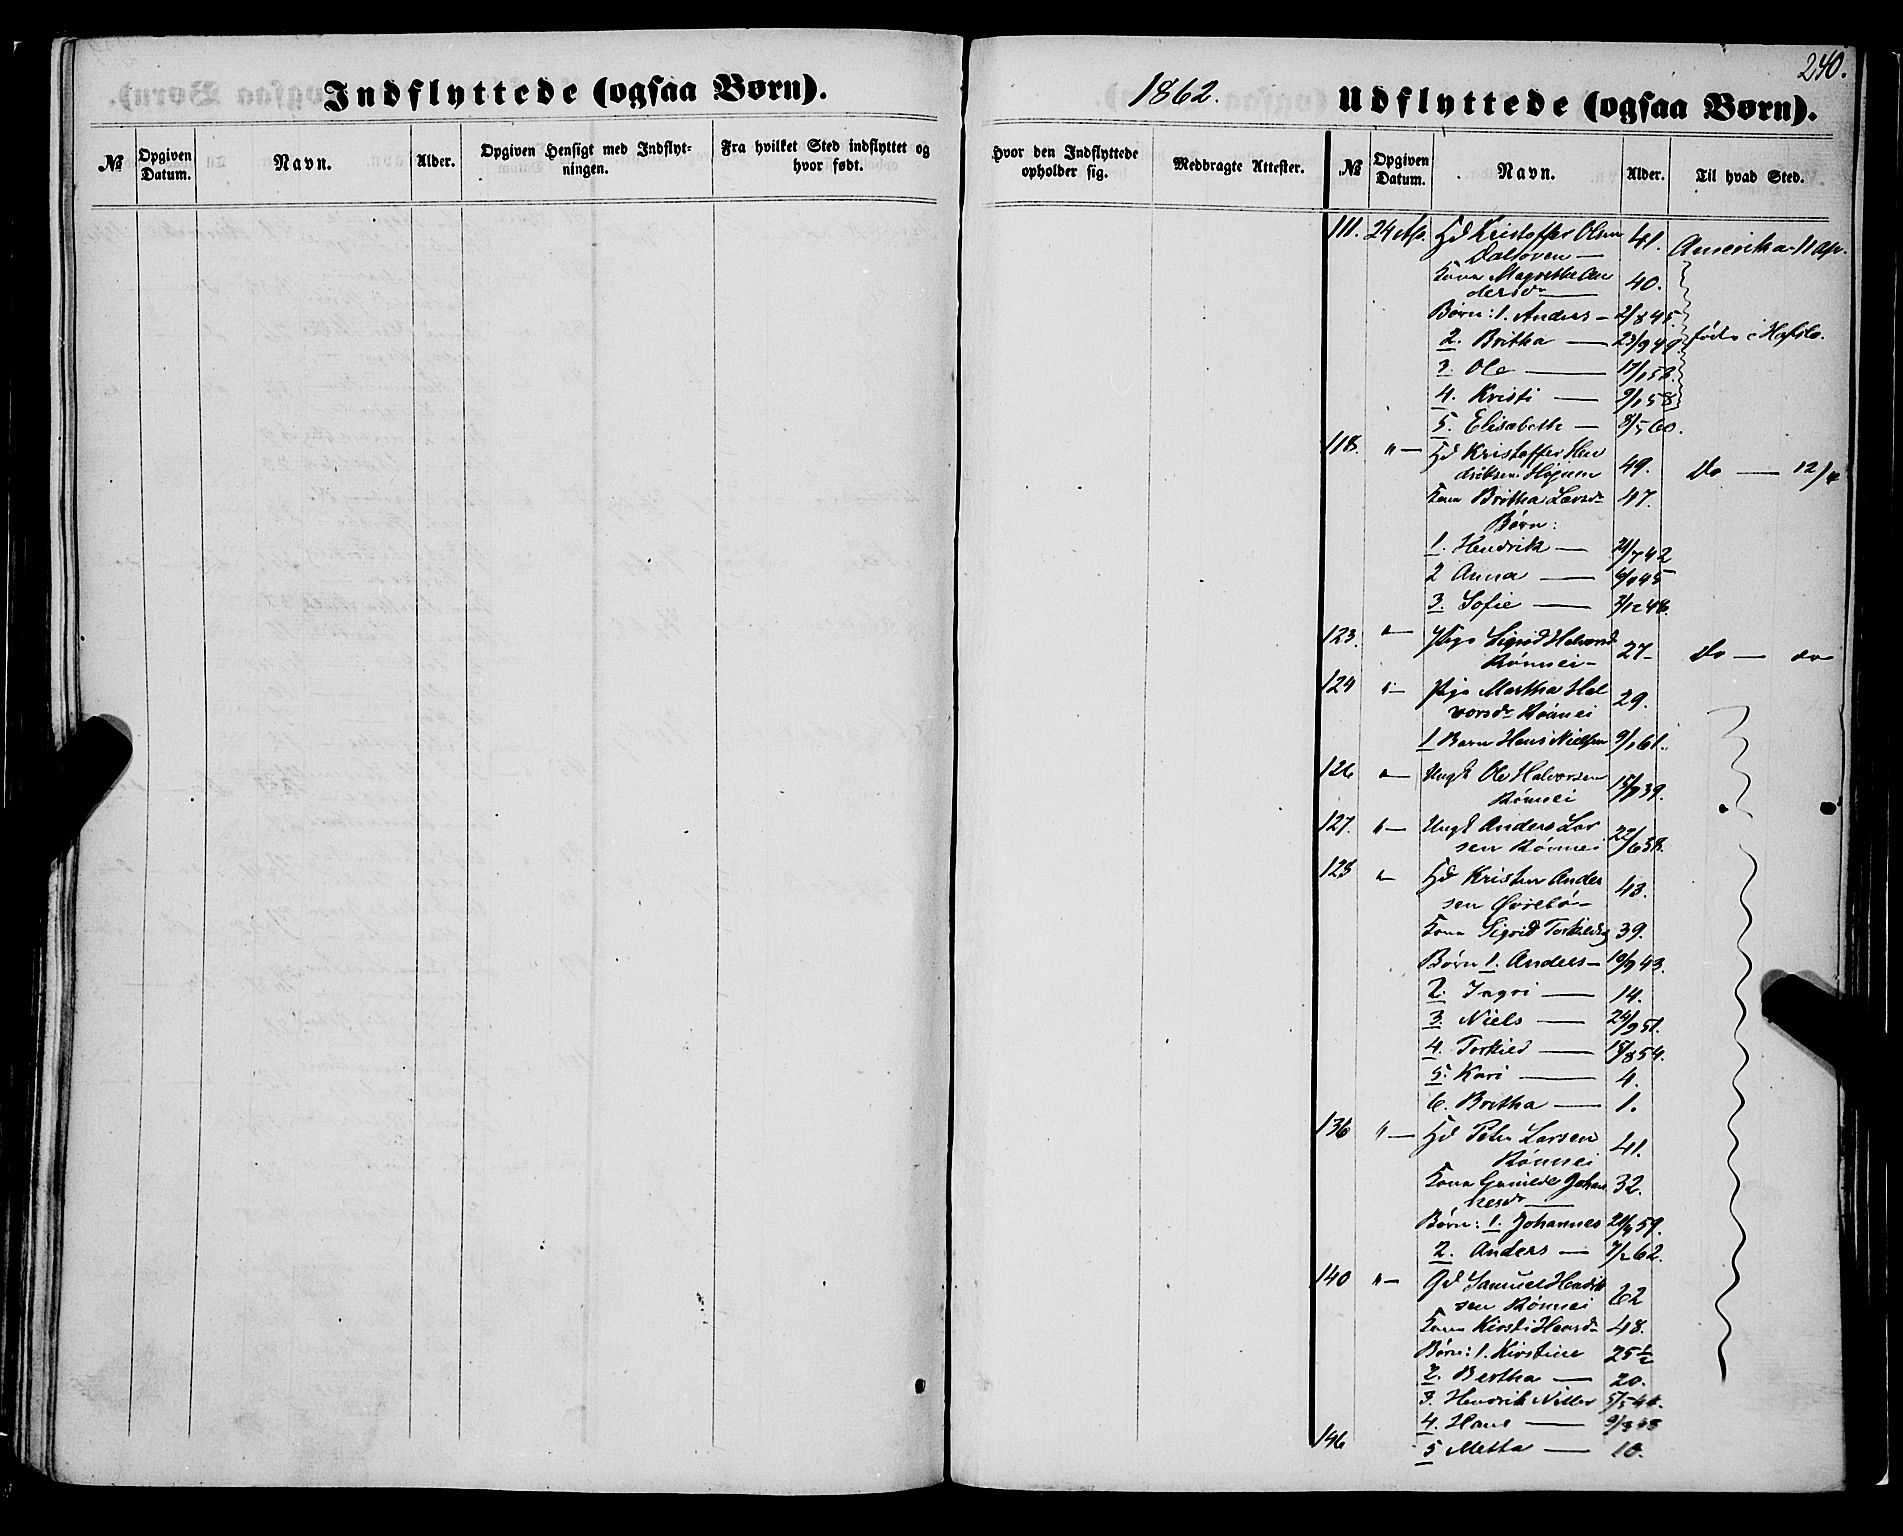 240.
Indflyttede (ogsaa Børn).
1862.
Udflyttede (ogsaa Børn).
№ Opgiven Datum. Navn. Alder. Opgiven Hensigt med Indflyt-ningen. Fra hvilket Sted indflyttet og hvor født. Hvor den Indflyttede opholder sig. Medbragte Attester. № Opgiven Datum. Navn. Alder. Til hvad Sted.
111. 24 Ap. Fd Kristoffer Olsen 41. Amerika 11 Ap.
Kona Magrethe An
dersdr 40.
Børn: 1. Anders — 2/8 45.
2. Britha — 23/9 49. føde i Hafslo.
3. Ole —
4. Kristi — 9/1 58
5. Elisabeth — 8/5 60.
118. " — Fd Kristoffer Hen
driksen 49. Do — 12/4
Kona Britha Larsdr 47.
Børn:
1. Hendrik — 21/7 42
2 Anna —
3. Sofie — 3/12 48.
123. " — Pige Sigrid Halvorsd
Rønnei — 27 — Do — do
124 " — Pige Martha Hal
vorsdr Rønnei 29.
1 Barn Hans Nielsen 9/1 61.
126 " — Ungk Ole Halvorsen
Rønnei
127. " — Ungk Anders Lar
sen Rønnei 22/6 38.
128 " Fd Kristen Ander
sen Øvrebø — 43.
Kona Sigrid Torkilsd 39.
Børn 1. Anders — 19/9 43.
2. Ingri — 14.
3. Niels — 24/9 51.
4. Torkild — 18/8 54.
5. Kari — 4.
6. Britha — 1.
136 " — Fd Peder Larsen
Rønnei 41.
Kona Gunild Johan
nesdr 32.
Børn: 1. Johannes 59.
2. Anders — 7/2 62.
140 " — Gd Samuel Hendrik
sen Rønnei 62
Kona Kirsti 48.
Børn: 1. Kirstine 25½
2. Bertha — 20.
3. Hendrik
4. Hans —
146 5 Metta — 10.